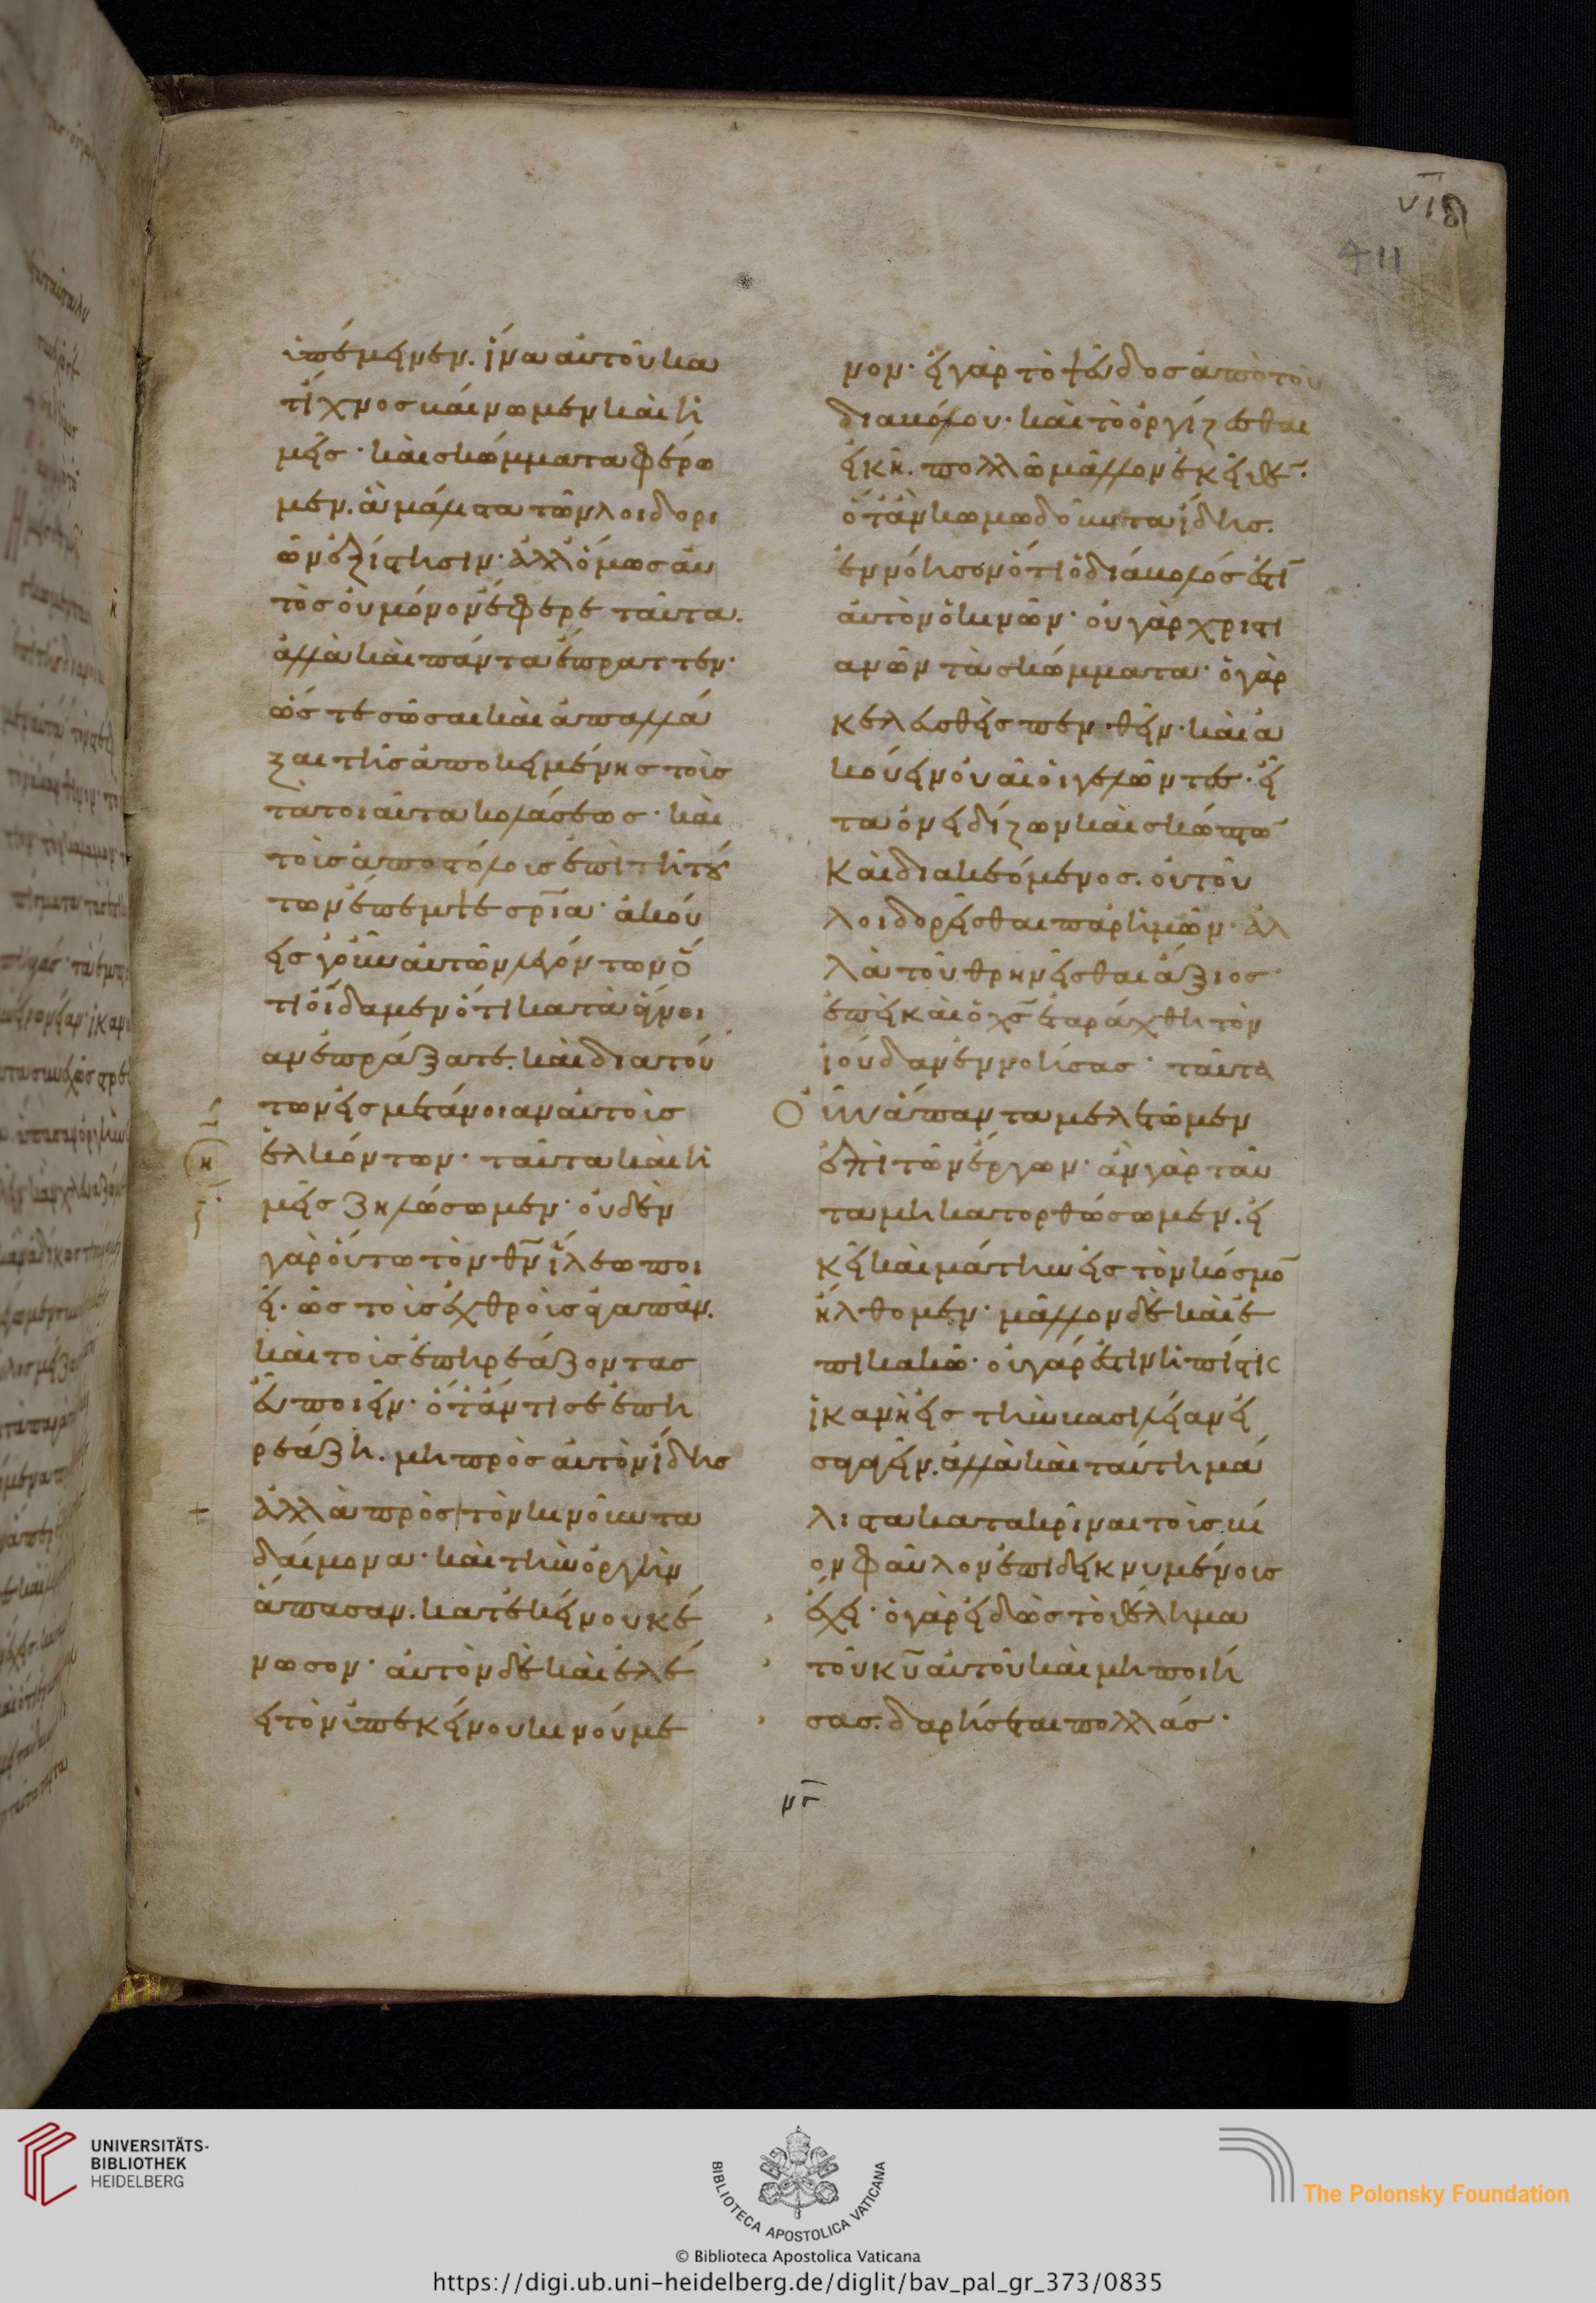 υιθ
411
ὑπέμεινεν. ἵνα αὐτοῦ κα
τ' ἴχνος βαίνωμεν καὶ ἡ
μεῖς· καὶ σκώμματα φέρω
μεν. ἃ μάλιστα τῶν λοιδορι
ῶν ἐξίστησιν· ἀλλ' ὅμως αὐ
τὸς οὐ μόνον ἔφερε ταῦτα.
ἀλλὰ καὶ πάντα ἔπραττεν·
ὥστε σῶσαι καὶ ἀπαλλά
ξαι τῆς ἀποκειμένης τοῖς
τὰ τοιαῦτα κολάσεως· καὶ
τοῖς ἀποστόλοις ἐπὶ τῇ τού
των ἔπεμπε σρία· ἀκού
εις γοῦν αὐτῶν λεγόντων ὅ
τι οἴδαμεν ὅτι κατὰ ἄγνοι
αν ἐπράξατε. καὶ διὰ τού
των εἰς μετάνοιαν αὐτοῖς
ἑλκόντων· ταῦτα καὶ ἡ
μεῖς ζηλώσωμεν· οὐδὲν
γὰρ οὕτω τὸν θν ἵλεω ποι
εῖ. ὡς τὸ τοῖς ἐχθροῖς ἀγαπᾶν.
καὶ τοῖς ἐπηρεάζοντας
εὖ ποιεῖν· ὅτάν τις ἐπη
ρεάζῃ. μὴ πρὸς αὐτὸν ἴδῃς
ἀλλὰ πρὸς τὸν κινοῦντα
δαίμονα· καὶ τὴν ὀργὴν
ἅπασαν. κατ' ἐκείνου κέ
νωσον· αὐτὸν δὲ καὶ ἐλέ
ει τὸν ὑπ' ἐκείνου κινούμε
νον· εἰ γὰρ τὸ ψεῦδος ἀπὸ τοῦ
διαβόλου· καὶ τὸ ὀργίζεσθαι
εἰκῆ. πολλῶ μᾶλλον ἐκεῖθεν·
ὅτὰν κωμωδοῦντα ἴδῃς.
ἐννόησον ὅτι ὁ διάβολός ἐστι
αὐτὸν ὁ κινῶν· οὐ γὰρ χριστι
ανῶν τὰ σκώμματα· ὁ γὰρ
κελευσθεὶς πενθεῖν· καὶ ἀ
κούειν οὐαὶ οἱ γελῶντες· εἶ
τα ὀνειδίζων καὶ σκώπτων
καὶ διακεόμενος. οὐ τοῦ
λοιδορεῖσθαι παρ' ἡμῶν· ἀλ
λὰ τοῦ θρηνεῖσθαι ἄξιος·
ἐπεὶ καὶ ὁ χς ἐταράχθη τὸν
ἰούδαν ἐννοήσας· ταῦτα
οὖν ἅπαντα μελετῶμεν
ἐπὶ τῶν ἔργων· ἂν γὰρ ταῦ
τα μὴ κατορθώσωμεν. εἰ
κῆ καὶ μάτην εἰς τὸν κόσμον
ἤλθομεν· μᾶλλον δὲ καὶ ἐ
πὶ κακῶ· οὐ γάρ ἐστιν ἡ πίστις
ἱκανὴ εἰς τὴν βασιλείαν εἰ
σαγαγεῖν. ἀλλὰ καὶ ταύτη μά
λιστα κατακρῖναι τοῖς βί
ον φαῦλον ἐπιδεικνυμένοις
ἔχει· ὁ γὰρ εἰδὼς τὸ θέλημα
τοῦ κυ αὐτοῦ καὶ μὴ ποιή
σας. δαρήσεται πολλάς·
νγ
UNIVERSITÄTS-
BIBLIOTHEK
HEIDELBERG
BIBLIOTECA APOSTOLICA VATICANA
The Polonsky Foundation
© Biblioteca Apostolica Vaticana
https://digi.ub.uni-heidelberg.de/diglit/bav_pal_gr_373/0835